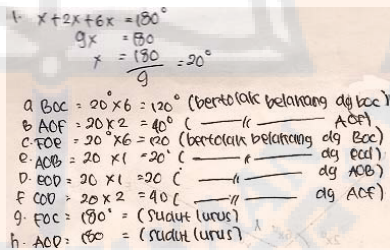 1. x + 2x + 6x = 180°
9x = 180
x = 180/9 = 20°
a BOC = 20° x 6 = 120° (bertolak belakang dg boc)
B AOF = 20 x 2 = 40° ( —〃— AOF)
C. FOE = 20° x 6 = 120 (bertolak belakang dg BOC)
e. AOB = 20 x 1 = 20° ( —〃— dg EOD)
D. EOD = 20 x 1 = 20 ( —〃— dg AOB)
F COD = 20 x 2 = 40 ( —〃— dg AOF)
g. FOC = 180° = (sudut lurus)
h. AOD = 180 = (sudut lurus)